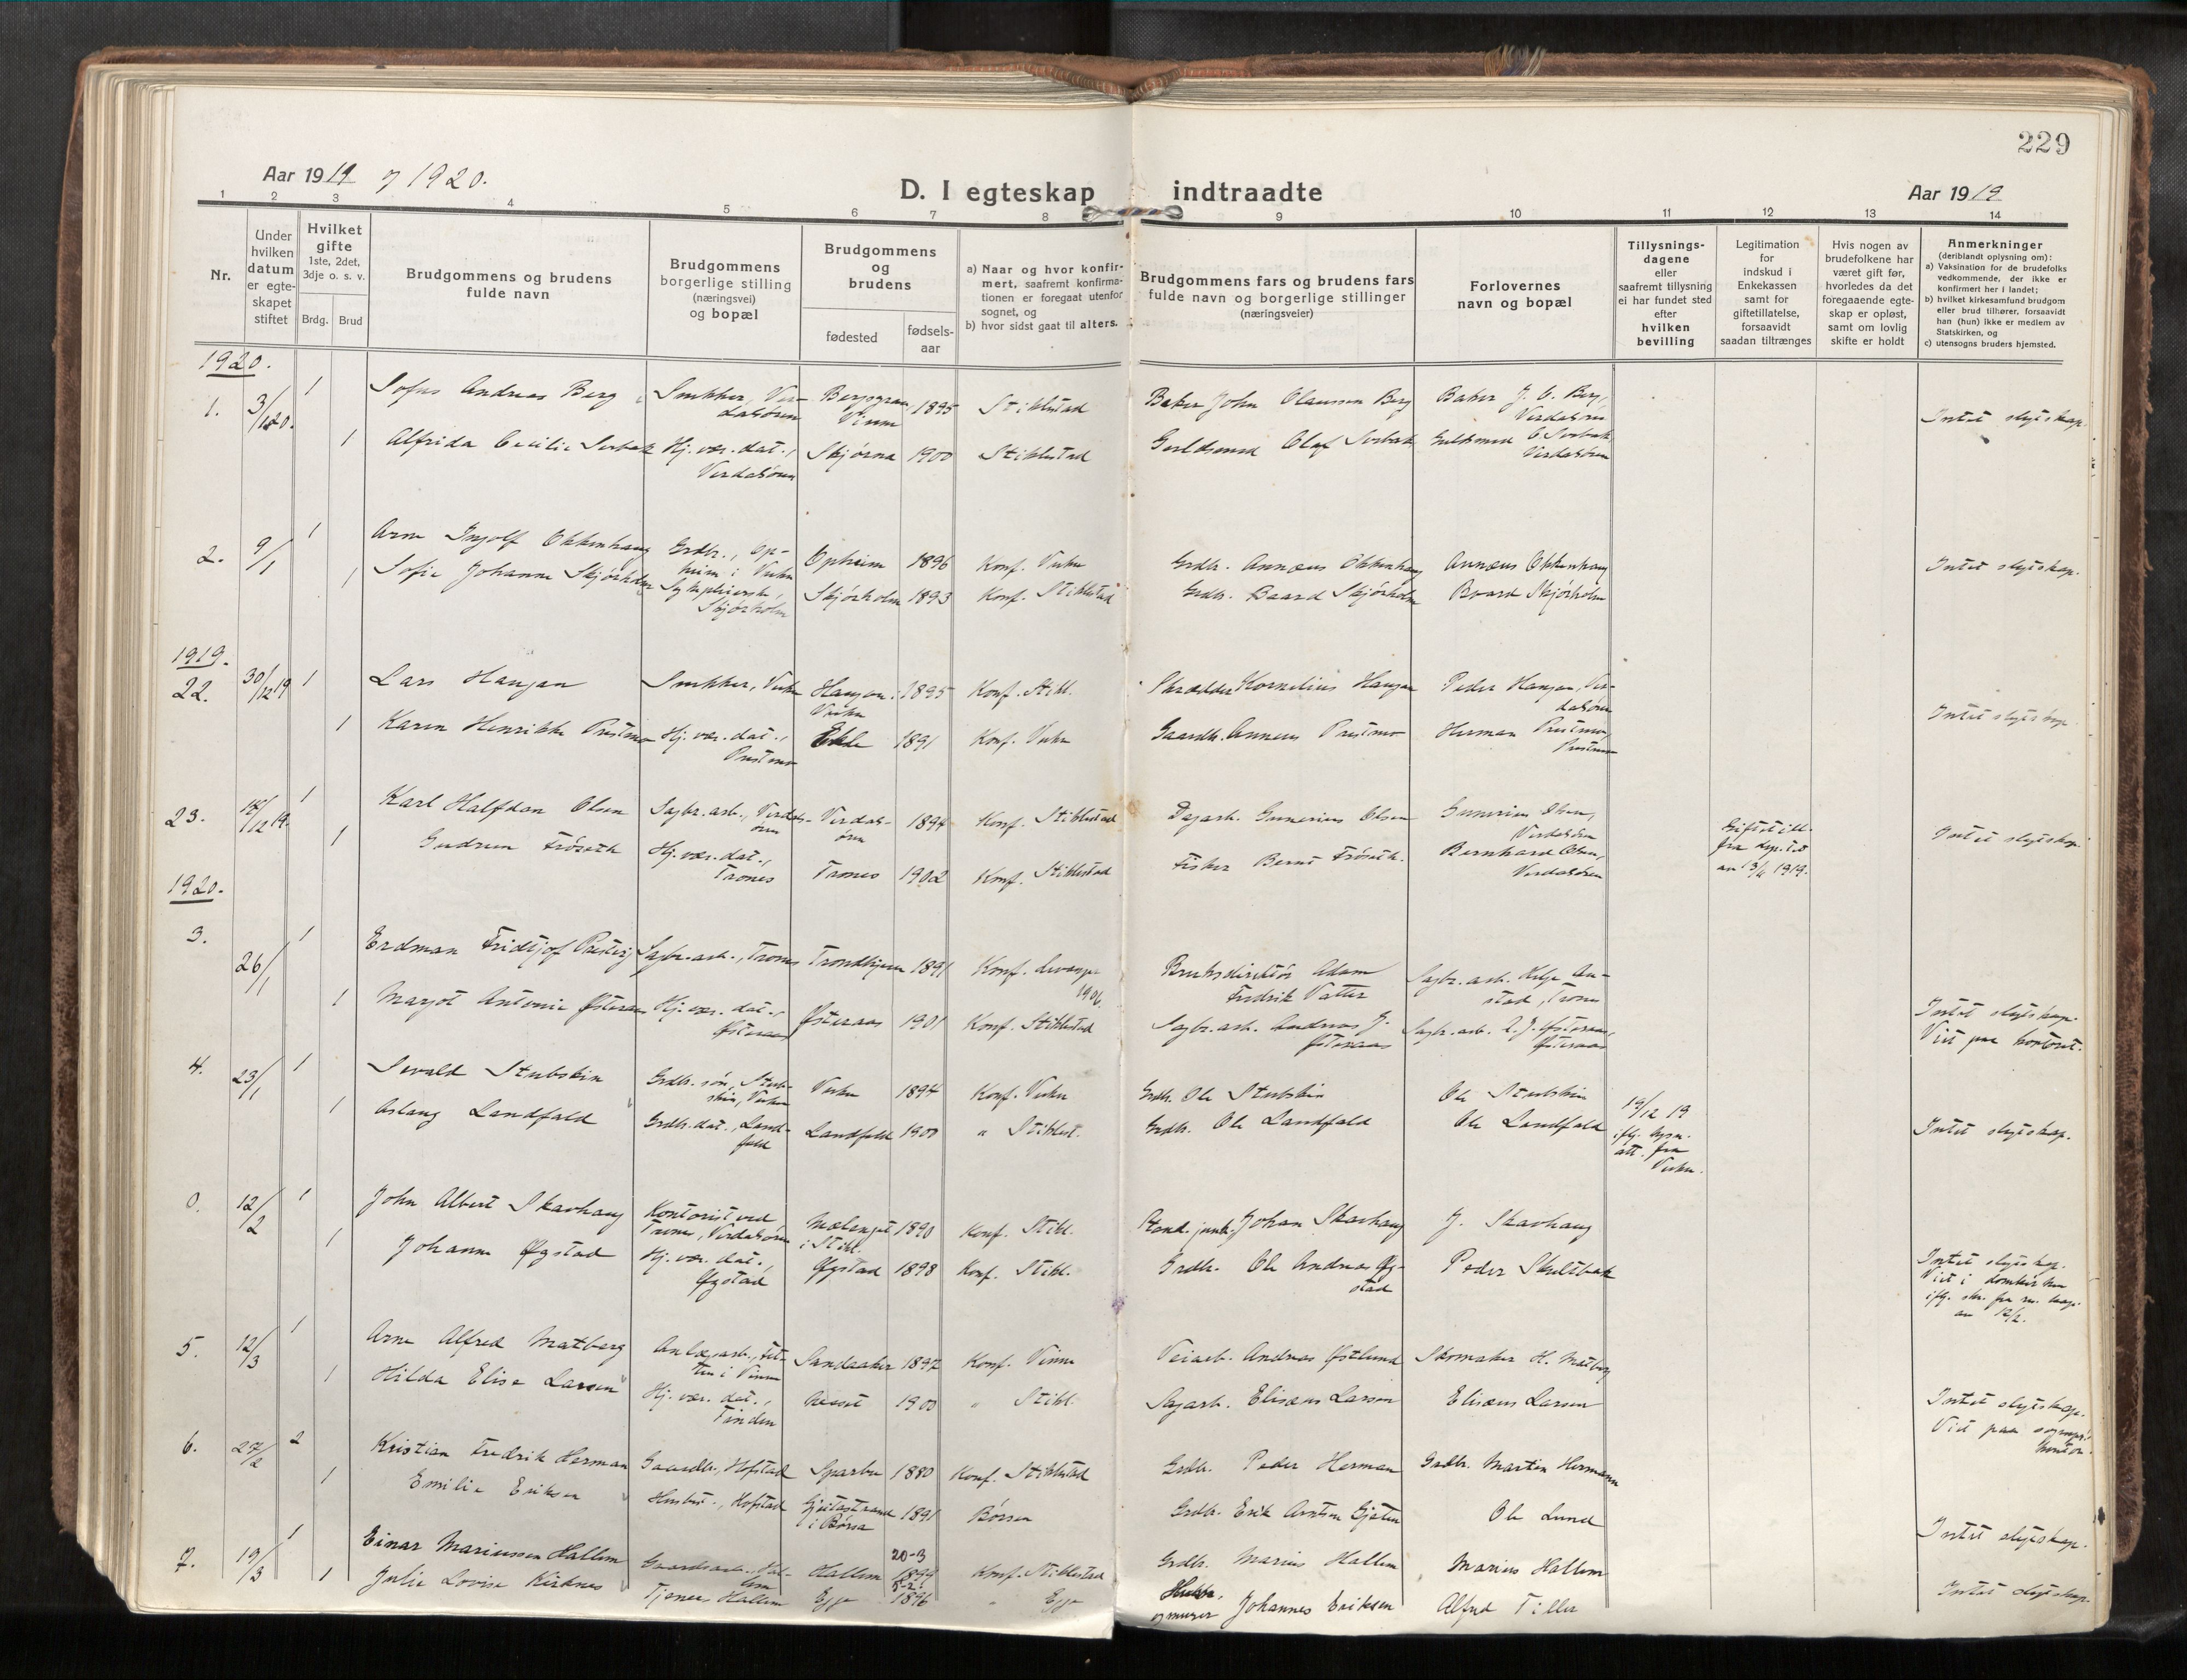 229
Aar 1919 og 1920.
D. I egteskap indtraadte
Aar 1919
1 2 3 4 5 6 7 8 9 10 11 12 13 14
Nr.
Under hvilken datum er egte-skapet stiftet
Hvilket gifte 1ste, 2det, 3dje o. s. v.
Brdg. Brud
Brudgommens og brudens fulde navn
Brudgommens borgerlige stilling (næringsvei) og bopæl
Brudgommens og brudens
fødested
fødsels-aar
a) Naar og hvor konfir-mert, saafremt konfirma-tionen er foregaat utenfor sognet, og
b) hvor sidst gaat til alters.
Brudgommens fars og brudens fars fulde navn og borgerlige stillinger (næringsveier)
Forlovernes navn og bopæl
Tillysnings-dagene eller saafremt tillysning ei har fundet sted efter hvilken bevilling
Legitimation for indskud i Enkekassen samt for giftetillatelse, forsaavidt saadan tiltrænges
Hvis nogen av brudefolkene har været gift før, hvorledes da det foregaaende egte-skap er opløst, samt om lovlig skifte er holdt
Anmerkninger (deriblandt oplysning om):
a) Vaksination for de brudefolks vedkommende, der ikke er konfirmert her i landet;
b) hvilket kirkesamfund brudgom eller brud tilhører, forsaavidt han (hun) ikke er medlem av Statskirken, og
c) utensogns bruders hjemsted.
1920.
1. 3/1 20. 1 Sofus Andreas Berg Snekker, Ver-dalsøren Vinne 1895 Stiklestad Baker John Olaussen Berg Baker J. O. Berg, Verdalsøren Intet slegtskap.
1 Alfrida Cecilie Sorbak Hj. vær. dat., Verdalsøren Skjørna 1900 Stiklestad Guldsmed Olaf Sorbak Guldsmed O. Sorbak Verdalsøren
2. 9/1 1 Arne Ingolf Okkenhaug Grdbr., Op-heim i Vuku Opheim 1896 Konf. Vuku Grdbr. Annæus Okkenhaug Annæus Okkenhaug Intet slegtskap.
1 Sofie Johanne Skjørholm Sykepleiersk., Skjørholm Skjørholm 1893 Konf. Stiklestad Grdbr. Baard Skjørholm Baard Skjørholm
1919.
22. 30/12 19 1 Lars Haugan Snekker, Vuku Haugan. Vuku 1895 Konf. Stikl. Skrædder Kornelius Haugan Peder Haugan, Ver-dalsøren Intet slegtskap.
1 Karen Henrikke Prestmo Hj. vær. dat., Prestmo Ekle 1891 Konf. Vuku Gaardbr. Anneus Prestmo Herman Prestmo, Prestmo
23. /12 19. 1 Karl Halfdan Olsen Sagbr. arb., Verdals-øren Verdals-øren 1894 Konf. Stiklestad Dagarb. Gunerius Olsen Gunerius Olsen, Verdalsøren Giftetill. fra dep.t av 13/ 1919. Intet slegtskap.
1 Gudrun Frøseth Hj. vær. dat., Trones Trones 1902 Konf. Stiklestad Fisker Bernt Frøseth. Bernhard Olsen, Verdalsøren
1920.
3. 26/1 1 Erdman Fridtjof Sagbr. arb., Trones Trondhjem 1891 Konf. Levanger 1906. Bruksdirektør Adam Fredrik Vatter Sagbr. arb. Helge An-stad, Trones Intet slegtskap.
1 Margot Antonie Østeraas Hj. vær. dat., Østeraas Østeraas 1901 Konf. Stiklestad Sagbr. arb. Andreas J. Østeraas Sagbr. arb. A. J. Østeraas, Østeraas Viet paa kontoret.
4. 23/1 1 Sevald Stubskin Grdbr. søn, Stub-skin, Vuku Vuku 1894 Konf. Vuku Grdbr. Ole Stubskin Ole Stubskin 19/12 19 ifg. lysn. att. fra Vuku. Intet slegtskap.
1 Aslaug Landfald Grdbr. dat., Land-fald Landfald 1900 " Stiklest. Grdbr. Ole Landfald Ole Landfald
0. 12/2 1 John Albert Skavhaug Kontorist ved Trones, Verdalsøren i Stikl. 1890 Konf. Stikl. Johan Skavhaug J. Skavhaug Intet slegtskap.
1 Johanne Øgstad Hj. vær. dat. Øgstad Øgstad 1898 Konf. Stikl. Grdbr. Ole Andreas Øg-stad Peder Skeltbak Viet i domkirken ifg. skr. fra res. kap. av 12/2.
5. 12/3 1 Arne Alfred Matberg Anlægsarb., i Vinne Sandaaker 1897 Konf. Vinne Veiarb. Andreas Østlund Skomaker H. Matberg Intet slegtskap.
1 Hilda Elise Larsen Hj. vær. dat., Tinden Nesset 1900 " Stikl. Sagarb. Elisæus Larsen Elisæus Larsen Viet paa sogneprs. kontor.
6. 27/2 2 Kristian Fredrik Herman Gaardbr., Hofstad Sparbu 1880 Konf. Stiklestad Grdbr. Peder Herman Grdbr. Martin Hermann Intet slegtskap.
1 Emilie Eriksen Husbest., Hofstad Gjeitastrand i Børsa 1891 Børsen Grdbr. Erik Arntsen Gjøten Ole Lund
7. 19/3 1 Einar Mariussen Hallem Gaardsarb., Hal-lem Hallem 20-3 1894 Konf. Stiklestad Grdbr. Marius Hallem Marius Hallem Intet slegtskap.
1 Julie Lovise Kirknes Tjener, Hallem Egge 1896 " Egge og murer Johannes Eriksen Alfred Tiller